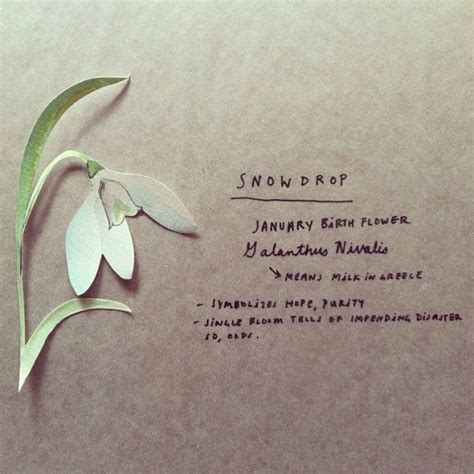 SNOWDROP
JANUARY BIRTH FLOWER
Galanthus Nivalis
↳ MEANS MILK IN GREECE
- SYMBOLIZES HOPE, PURITY
- SINGLE BLOOM TELLS OF IMPENDING DISASTER
SO, OOPS.